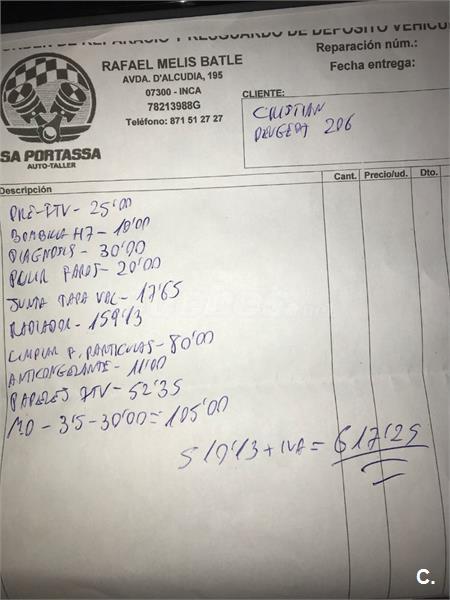 ORDEN DE REPARACIÓ Y RESGUARDO DE DEPOSITO VEHICU
RAFAEL MELIS BATLE
AVDA. D'ALCUDIA, 195
07300 - INCA
78213988G
Teléfono: 871 51 27 27
Reparación núm.:
Fecha entrega:
SA PORTASSA
AUTO-TALLER
CLIENTE:
CRISTIAN
PEUGEOT 206
Descripción
Cant.
Precio/ud.
Dto.
PRE-ITV - 25'00
BOMBILLA H7 - 10'00
DIAGNOSIS - 30'00
PULIR FAROS - 20'00
JUNTA TAPA VAL - 17'65
RADIADOR - 159'13
LIMPIAR F. PARTICULAS - 80'00
ANTICONGELANTE - 11'00
PAPELES ITV - 52'35
MO - 3'5 - 30'00 = 105'00
510'13 + IVA = 617'25
C.